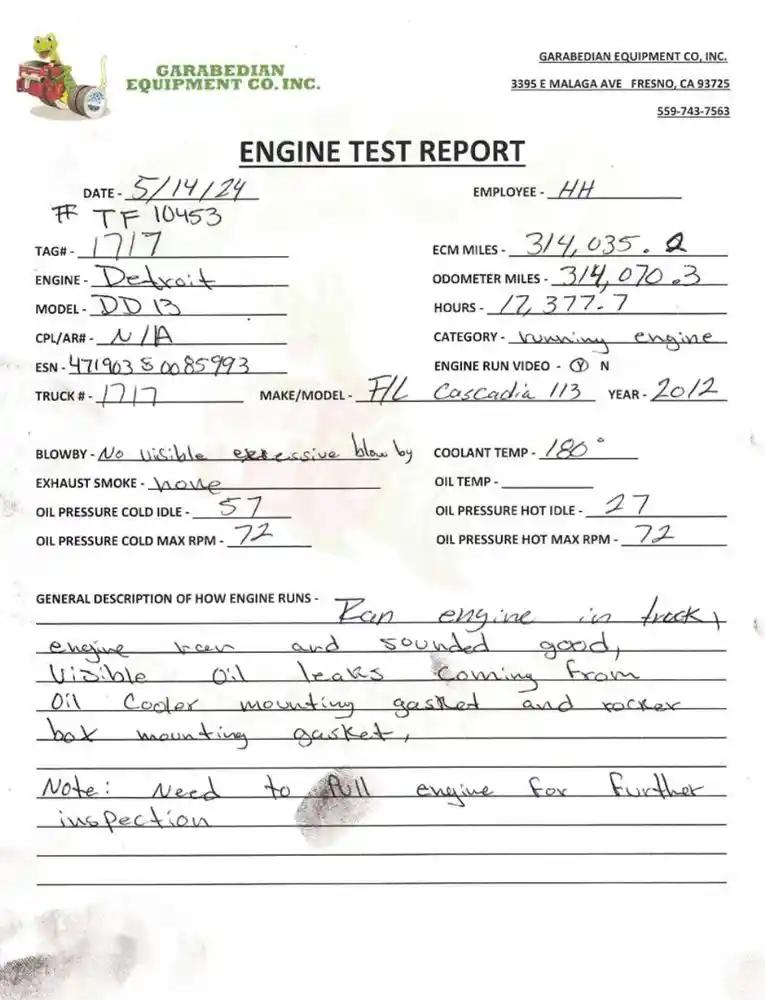 GARABEDIAN
EQUIPMENT CO. INC.
GARABEDIAN EQUIPMENT CO, INC.
3395 E MALAGA AVE FRESNO, CA 93725
559-743-7563
ENGINE TEST REPORT
DATE - 5/14/24 EMPLOYEE - HH
TF 10453
TAG# - 1717 ECM MILES - 314,035.
ENGINE - Detroit ODOMETER MILES - 314,070.3
MODEL - DD 13 HOURS - 17,377.7
CPL/AR# - N/A CATEGORY - running engine
ESN - 471903 S 0085993 ENGINE RUN VIDEO - Y N
TRUCK # - 1717 MAKE/MODEL - F/L Cascadia 113 YEAR - 2012
BLOWBY - No visible excessive blow by COOLANT TEMP - 180°
EXHAUST SMOKE - none OIL TEMP -
OIL PRESSURE COLD IDLE - 57 OIL PRESSURE HOT IDLE - 27
OIL PRESSURE COLD MAX RPM - 72 OIL PRESSURE HOT MAX RPM - 72
GENERAL DESCRIPTION OF HOW ENGINE RUNS - Ran engine in truck,
engine ran and sounded good,
Visible Oil leaks coming from
Oil Cooler mounting gasket and rocker
box mounting gasket,
Note: Need to pull engine for further
inspection